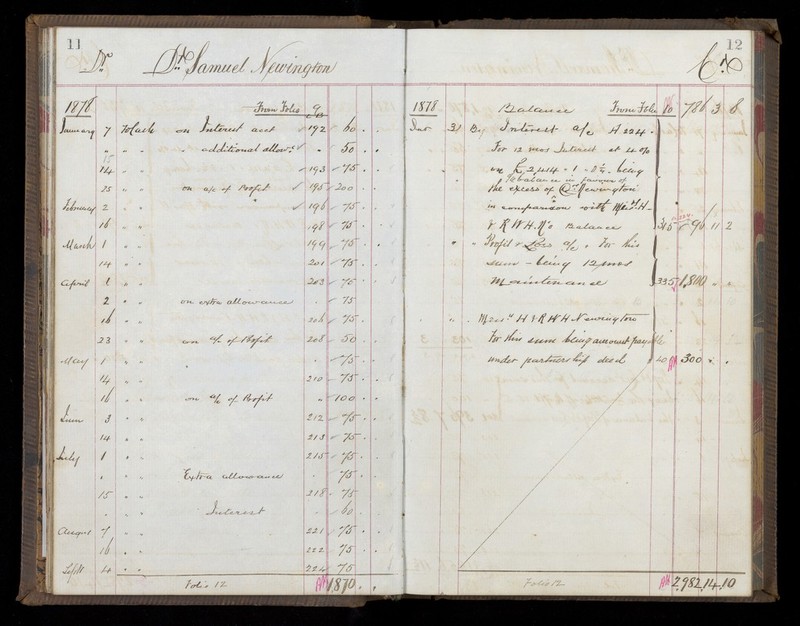 11
Dr Dr Samuel Newington
1878 From Folio 9
January 7 To Cash on Interest acct 192 60 . .
" " " additional allowce " 50 . .
15
14 " " 193 75 . .
25 " " on a/c of Profit 195 200 . .
February 2 " " " 196 75 . .
16 " " 198 75 . .
March 1 " " 199 75 . .
14 " " 201 75 . .
April 1 " " 203 75 . .
2 " " on extra allowance . 75
16 " " 206 75 . .
23 " " on a/c of Profit 208 50 . .
May 1 " " . 75 . .
14 " " 210 75 . .
16 " " on a/c of Profit " 100 . .
June 3 " " 212 75 . .
14 " " 213 75 . .
July 1 " " 215 75 . .
. " " Extra allowance . 75 . .
15 " " 218 75
. " " Interest - 60 . .
August 7 " " 221 75 . .
16 " " 222 75 . .
Septr 4 " " 224 75
Folio 12 1870 . .
12
Cr
1878 Balance From Folio 10 786 3 8
Dec 31 By Interest a/c H 224
For 12 mos Interest at 4 0/0
on £2414 - 1 - 8 being
balance in favour of
the excess of Dr Newington
in comparison with Messrs H
& R W H N's Balances 315 96 11 2
" " Profit & Loss a/c. For his
sum - being 12 mos
Maintenance 335 1,800 . .
" " Messrs H & R W H Newington
For this sum being amount payable
under partnership deed 20 300 . .
Folio 12 2,982 14 10